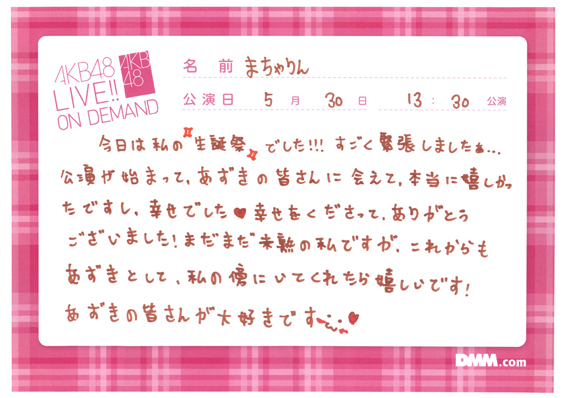 AKB48
LIVE!!
ON DEMAND
AKB
48
名 前 まちゃりん
公演日 5月30日 13:30 公演
今日は私の"生誕祭"でした!!! すごく緊張しましたぁ...
公演が始まって、あずきの皆さんに会えて、本当に嬉しかっ
たですし、幸せでした♥幸せをくださって、ありがとう
ございました!まだまだ未熟の私ですが、これからも
あずきとして、私の傍にいてくれたら嬉しいです!
あずきの皆さんが大好きです♥
DMM.com